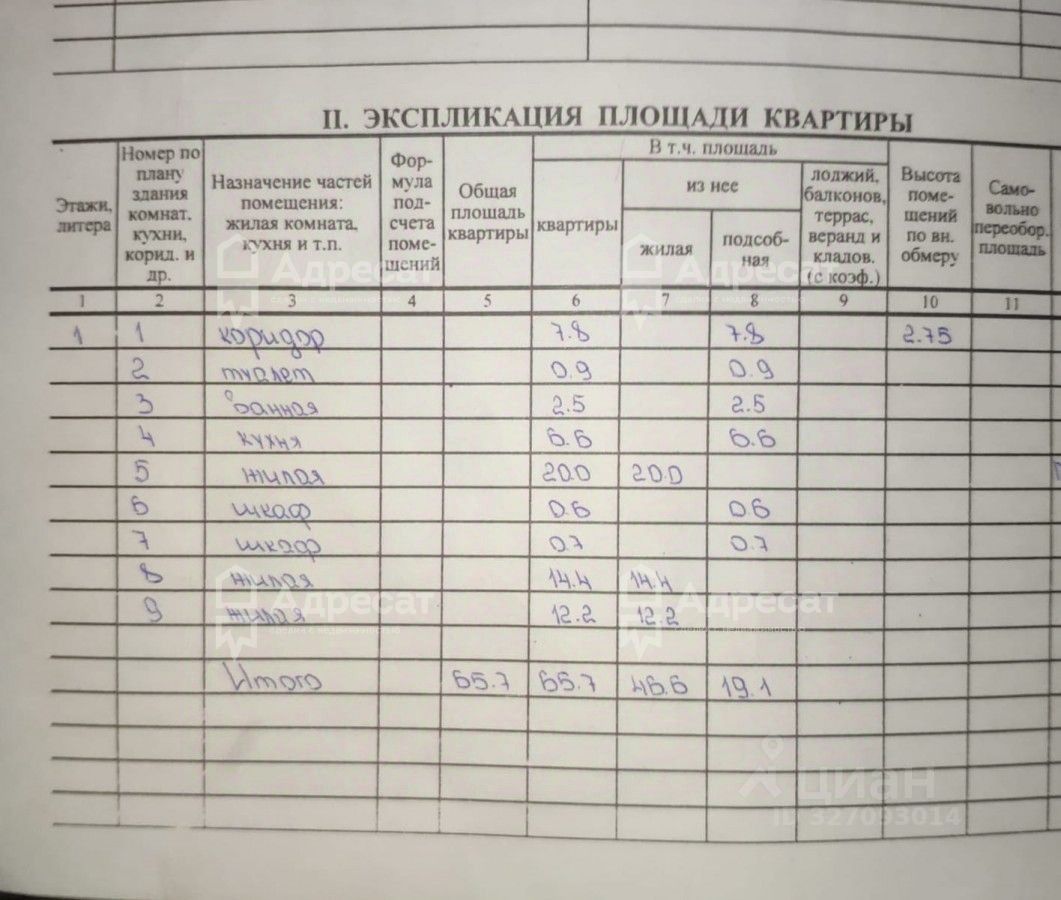 II. ЭКСПЛИКАЦИЯ ПЛОЩАДИ КВАРТИРЫ
Этажи, литера
Номер по плану здания комнат, кухни, корид. и др.
Назначение частей помещения: жилая комната, кухня и т.п.
Фор-мула под-счета поме-щений
Общая площадь квартиры
В т.ч. площадь
квартиры
из нее
жилая
подсоб-ная
лоджий, балконов, террас, веранд и кладов. (с коэф.)
Высота поме-щений по вн. обмеру
Само-вольно переобор. площадь
1 2 3 4 5 6 7 8 9 10 11
1 1 коридор 7.8 7.8 2.75
2 туалет 0.9 0.9
3 ванная 2.5 2.5
4 кухня 6.6 6.6
5 жилая 20.0 20.0
6 шкаф 0.6 0.6
7 шкаф 0.7 0.7
8 жилая 14.4 14.4
9 жилая 12.2 12.2
Итого 65.7 65.7 46.6 19.1
Адресат
сделки с недвижимостью
Адресат
сделки с недвижимостью
Адресат
сделки с недвижимостью
Адресат
сделки с недвижимостью
циан
ID 327093014